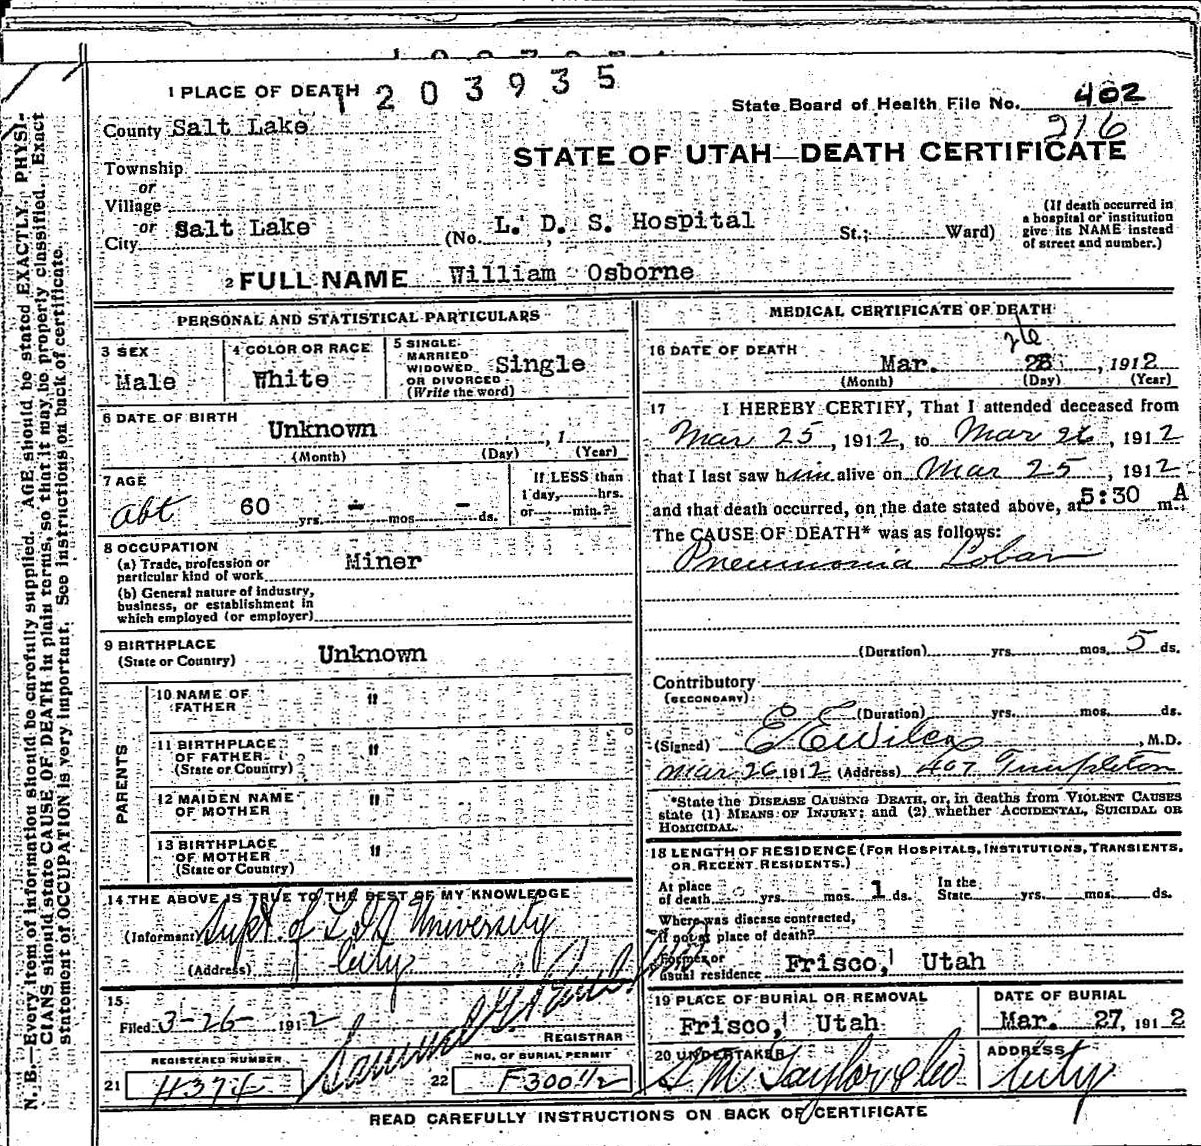 1 PLACE OF DEATH
1 2 0 3 9 3 5
State Board of Health File No. 402
216
County Salt Lake
STATE OF UTAH—DEATH CERTIFICATE
Township
or
Village
or
City Salt Lake (No. L. D. S. Hospital St.; Ward)
(If death occurred in a hospital or institution give its NAME instead of street and number.)
2 FULL NAME William Osborne
PERSONAL AND STATISTICAL PARTICULARS
3 SEX
Male
4 COLOR OR RACE
White
5 SINGLE
MARRIED
WIDOWED
OR DIVORCED
(Write the word)
Single
6 DATE OF BIRTH
Unknown , 1
(Month) (Day) (Year)
7 AGE
abt 60 yrs. – mos. – ds.
If LESS than
1 day, hrs.
or min.?
8 OCCUPATION
(a) Trade, profession or
particular kind of work Miner
(b) General nature of industry,
business, or establishment in
which employed (or employer)
9 BIRTHPLACE
(State or Country) Unknown
PARENTS
10 NAME OF
FATHER "
11 BIRTHPLACE
OF FATHER
(State or Country) "
12 MAIDEN NAME
OF MOTHER "
13 BIRTHPLACE
OF MOTHER
(State or Country) "
14 THE ABOVE IS TRUE TO THE BEST OF MY KNOWLEDGE
(Informant) Supt. of L D S University
(Address) City
15
Filed 3-26- 1912
REGISTRAR
REGISTERED NUMBER
21 H374
NO. OF BURIAL PERMIT
22 F300½
MEDICAL CERTIFICATE OF DEATH
16 DATE OF DEATH
26
Mar. 28, 1912
(Month) (Day) (Year)
17 I HEREBY CERTIFY, That I attended deceased from
Mar 25, 1912, to Mar 26, 1912
that I last saw him alive on Mar 25, 1912
and that death occurred, on the date stated above, at 5:30 A m.
The CAUSE OF DEATH* was as follows:
Pneumonia Lobar
(Duration) yrs. mos. 5 ds.
Contributory
(SECONDARY)
(Duration) yrs. mos. ds.
(Signed) E E Wilcox, M.D.
Mar 26 1912 (Address) 407 Templeton
*State the DISEASE CAUSING DEATH, or, in deaths from VIOLENT CAUSES
state (1) MEANS OF INJURY; and (2) whether ACCIDENTAL, SUICIDAL OR
HOMICIDAL.
18 LENGTH OF RESIDENCE (FOR HOSPITALS, INSTITUTIONS, TRANSIENTS,
OR RECENT RESIDENTS.)
At place
of death yrs. mos. 1 ds.
In the
State yrs. mos. ds.
Where was disease contracted,
if not at place of death?
Former or
usual residence Frisco, Utah
19 PLACE OF BURIAL OR REMOVAL
Frisco, Utah
DATE OF BURIAL
Mar. 27, 1912
20 UNDERTAKER
S M Taylor & Co
ADDRESS
City
READ CAREFULLY INSTRUCTIONS ON BACK OF CERTIFICATE
N. B.—Every item of information should be carefully supplied. AGE should be stated EXACTLY. PHYSI-
CIANS should state CAUSE OF DEATH in plain terms, so that it may be properly classified. Exact
statement of OCCUPATION is very important. See instructions on back of certificate.